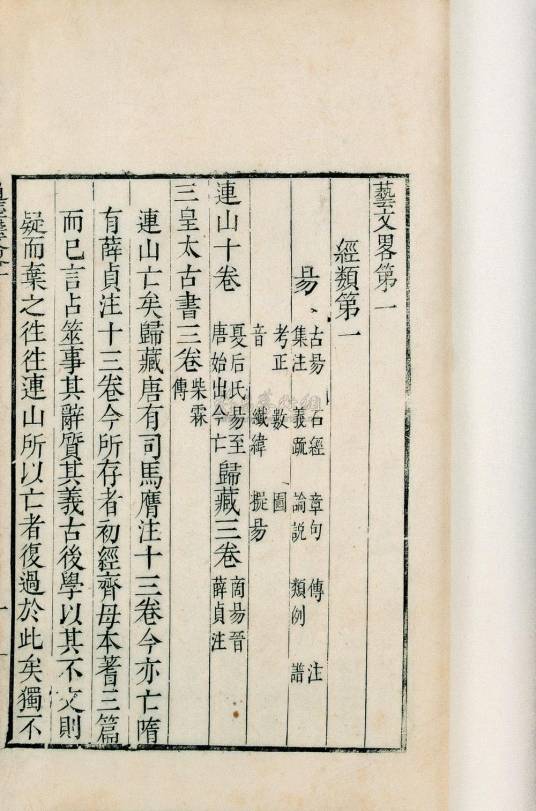 藝文畧第一
經類第一
易 古易 石經 章句 傳 注
集注 義䟽 論說 類例 譜
考正 數 圖
音 纖緯 擬易
連山十卷 夏后氏易至唐始出今亡 歸藏三卷 商易晉薛貞注
三皇太古書三卷 柴霖傳
連山亡矣歸藏唐有司馬膺注十三卷今亦亡隋
有薛貞注十三卷今所存者初經齊母本蓍三篇
而已言占筮事其辭質其義古後學以其不文則
疑而棄之往往連山所以亡者復過於此矣獨不